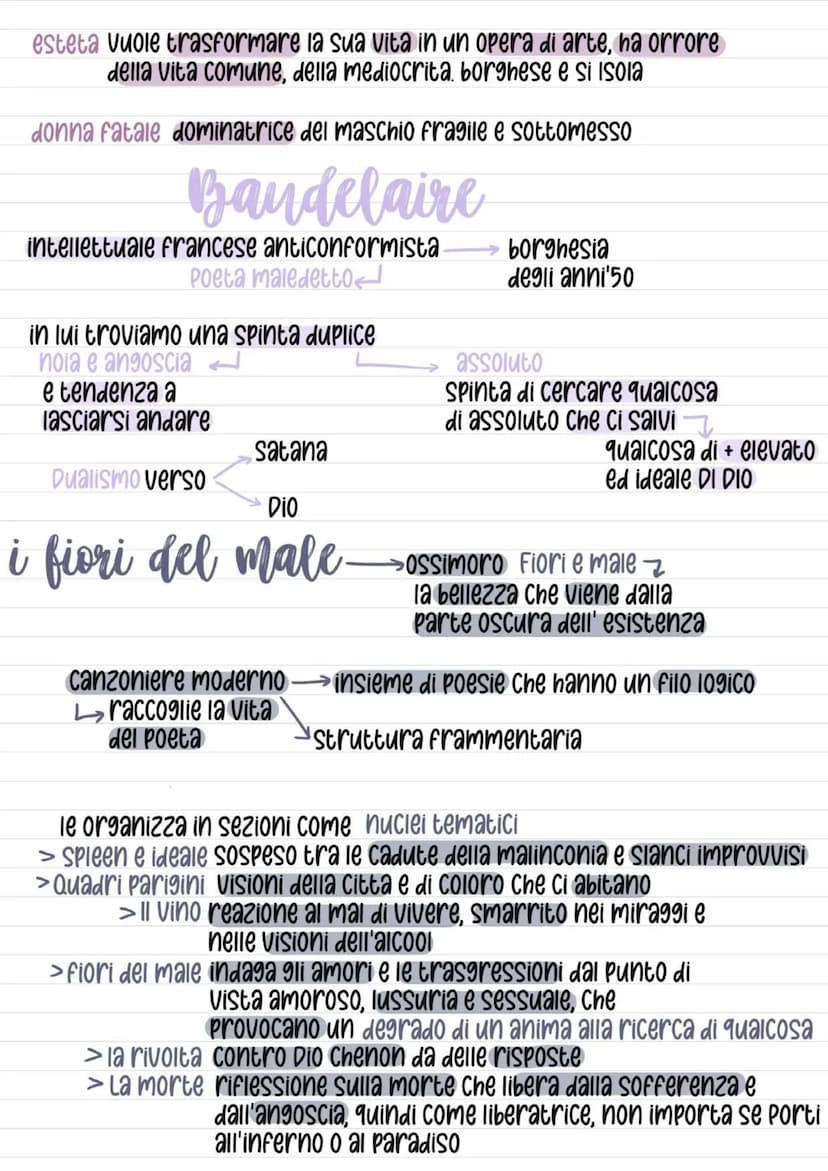 esteta vuole trasformare la sua vita in un opera di arte, ha orrore
della vita comune, della mediocrita. borghese e si isola
donna fatale dominatrice del maschio fragile e sottomesso
Baudelaire
intellettuale francese anticonformista → borghesia
poeta maledetto degli anni'50
in lui troviamo una spinta duplice
noia e angoscia assoluto
e tendenza a spinta di cercare qualcosa
lasciarsi andare di assoluto che ci salvi
Satana qualcosa di + elevato
Dualismo verso ed ideale DI DIO
Dio
i fiori del male → ossimoro fiori e male
la bellezza che viene dalla
parte oscura dell' esistenza
canzoniere moderno → insieme di poesie che hanno un filo logico
raccoglie la vita
del poeta struttura frammentaria
le organizza in sezioni come nuclei tematici
> spleen e ideale sospeso tra le cadute della malinconia e slanci improvvisi
> Quadri parigini visioni della citta e di coloro che ci abitano
> Il vino reazione al mal di vivere, smarrito nei miraggi e
nelle visioni dell'alcool
> fiori del male indaga gli amori e le trasgressioni dal punto di
vista amoroso, lussuria e sessuale, che
provocano un degrado di un anima alla ricerca di qualcosa
> la rivolta contro Dio chenon da delle risposte
> La morte riflessione sulla morte che libera dalla sofferenza e
dall'angoscia, quindi come liberatrice, non importa se porti
all'inferno o al paradiso